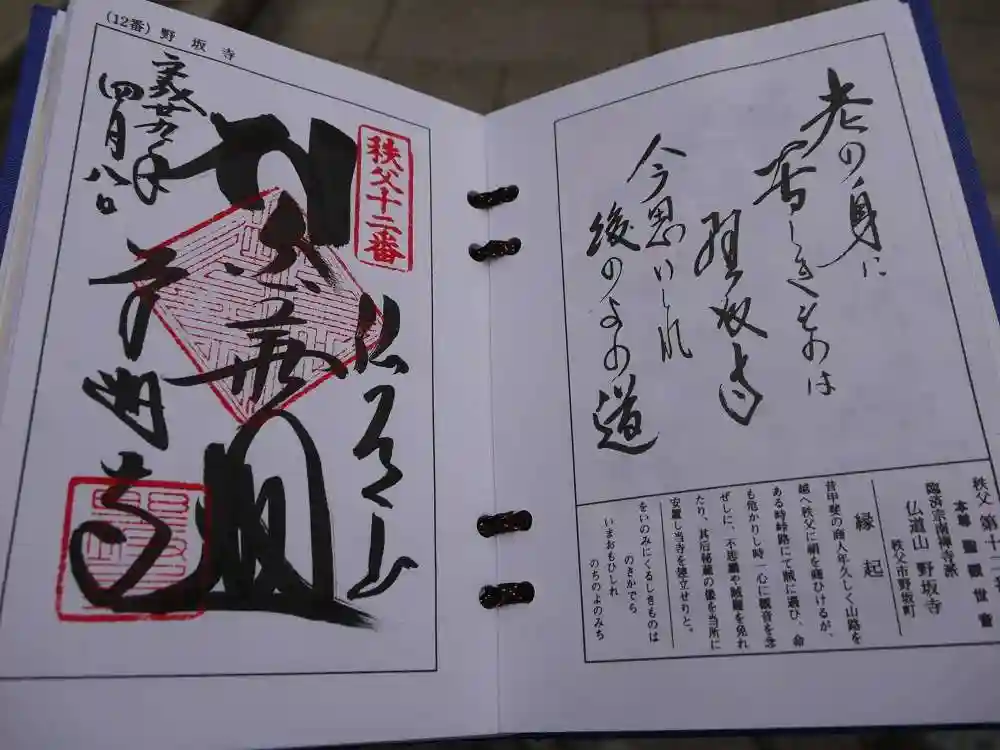 老の身に
苦しきものは
野坂寺
今思いしれ
後のよの道
秩父 第十二番
本尊 聖観世音
臨済宗南禅寺派
仏道山 野坂寺
秩父市野坂町
縁起
昔甲斐の商人年久しく山路を
越へ秩父に絹を商ひけるが、
ある時峠路にて賊に遭ひ、命
も危かりし時一心に観音を念
ぜしに、不思議や賊難を免れ
たり、其后秘蔵の像を当所に
安置し当寺を建立せりと。
をいのみにくるしきものは
のさかでら
いまおもひしれ
のちのよのみち
(12番) 野坂寺
秩父十二番
仏道山
四月八日